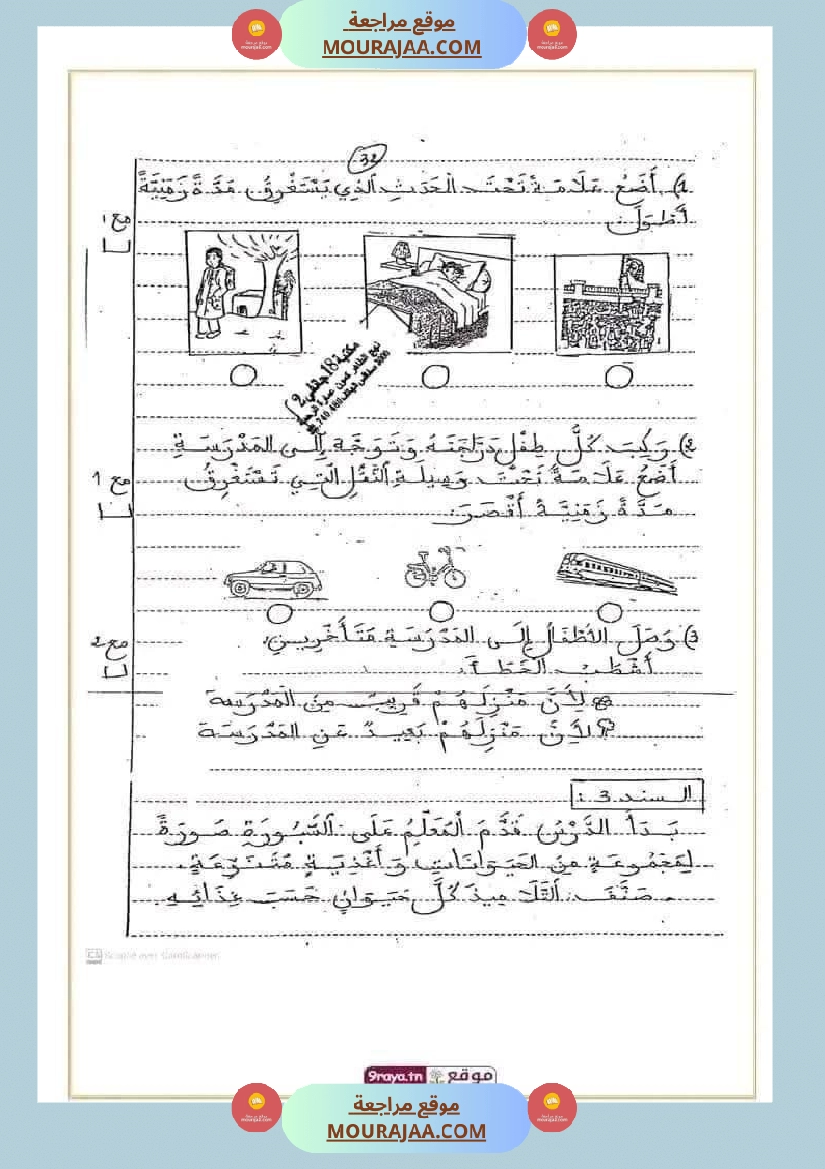 موقع مراجعة
MOURAJAA.COM
32
1) أَضَعُ عَلَامَةً تَحْتَ الْحَدَثِ الَّذِي يَسْتَغْرِقُ مُدَّةً زَمَنِيَّةً
أَطْوَلَ
مع 1
مكتبة 18 جانفي 2
2) رَكِبَ كُلُّ طِفْلٍ دَرَّاجَتَهُ وَتَوَجَّهَ إِلَى المَدْرَسَةِ
أَضَعُ عَلَامَةً تَحْتَ وَسِيلَةِ النَّقْلِ الَّتِي تَسْتَغْرِقُ
مُدَّةً زَمَنِيَّةً أَقْصَرَ.
مع 1
3) وَصَلَ الأَطْفَالُ إِلَى المَدْرَسَةِ مُتَأَخِّرِينَ.
أَشْطُبُ الخَطَأَ.
مع 2
لِأَنَّ مَنْزِلَهُمْ قَرِيبٌ مِنَ الْمَدْرَسَة
لِأَنَّ مَنْزِلَهُمْ بَعِيدٌ عَنِ المَدْرَسَة
السند 3 :
بَدَأَ الدَّرْسُ قَدَّمَ الْمُعَلِّمُ عَلَى السَّبُورَةِ صُورَةً
لِمَجْمُوعَةٍ مِنَ الحَيَوَانَاتِ وَ أَغْذِيَةٍ مُتَنَوِّعَةٍ.
صَنَّفَ التَّلَامِيذُ كُلَّ حَيَوَانٍ حَسَبَ غِذَائِهِ.
Scanné avec CamScanner
موقع 9raya.tn
موقع مراجعة
MOURAJAA.COM